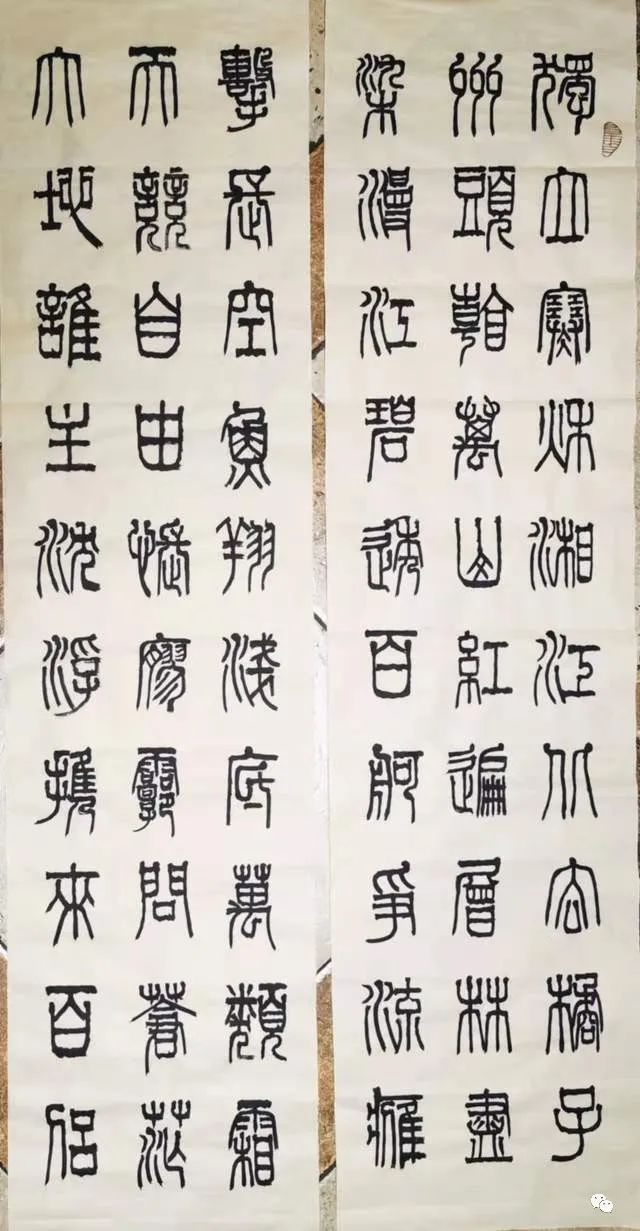 獨立寒秋湘江北去橘子
州頭看萬山紅遍層林盡
染漫江碧透百舸爭流鷹
擊長空魚翔淺底萬類霜
天競自由悵廖霩問蒼茫
大地誰主沈浮攜來百侶